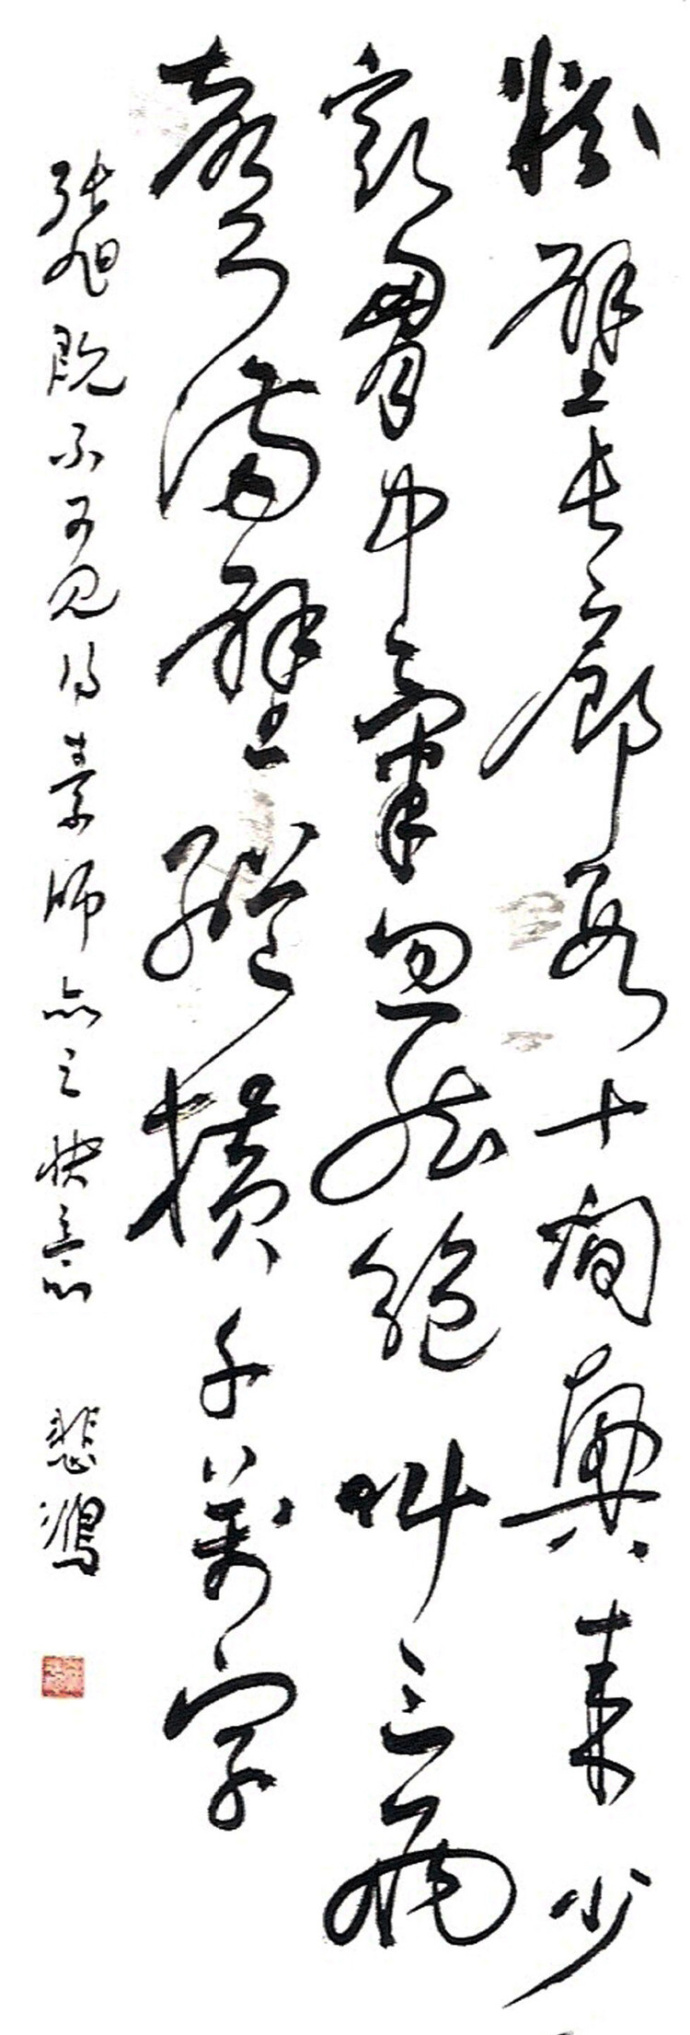 粉壁長廊數十間興來少
豁胸中氣忽然絕叫三五
聲滿壁縱橫千萬字
張旭既不可見得素師亦足快意 悲鴻